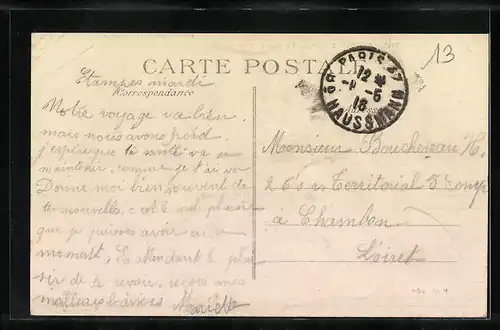 13
CARTE POSTALE
Correspondance
PARIS 47
12
5
16
Bd HAUSSMANN
Etampes mardi
Notre voyage va bien
mais nous avons froid
j'espère que ta santé va se
maintenir, comme je t'ai vu
Donne moi bien souvent de
tes nouvelles, c'est le seul plaisir
que je puisse avoir en ce
moment. En attendant le plai
sir de te revoir, reçois mes
meilleurs baisers Mariette
Monsieur Bouchereau H.
Territorial 5 Comp
à Chambon
Loiret